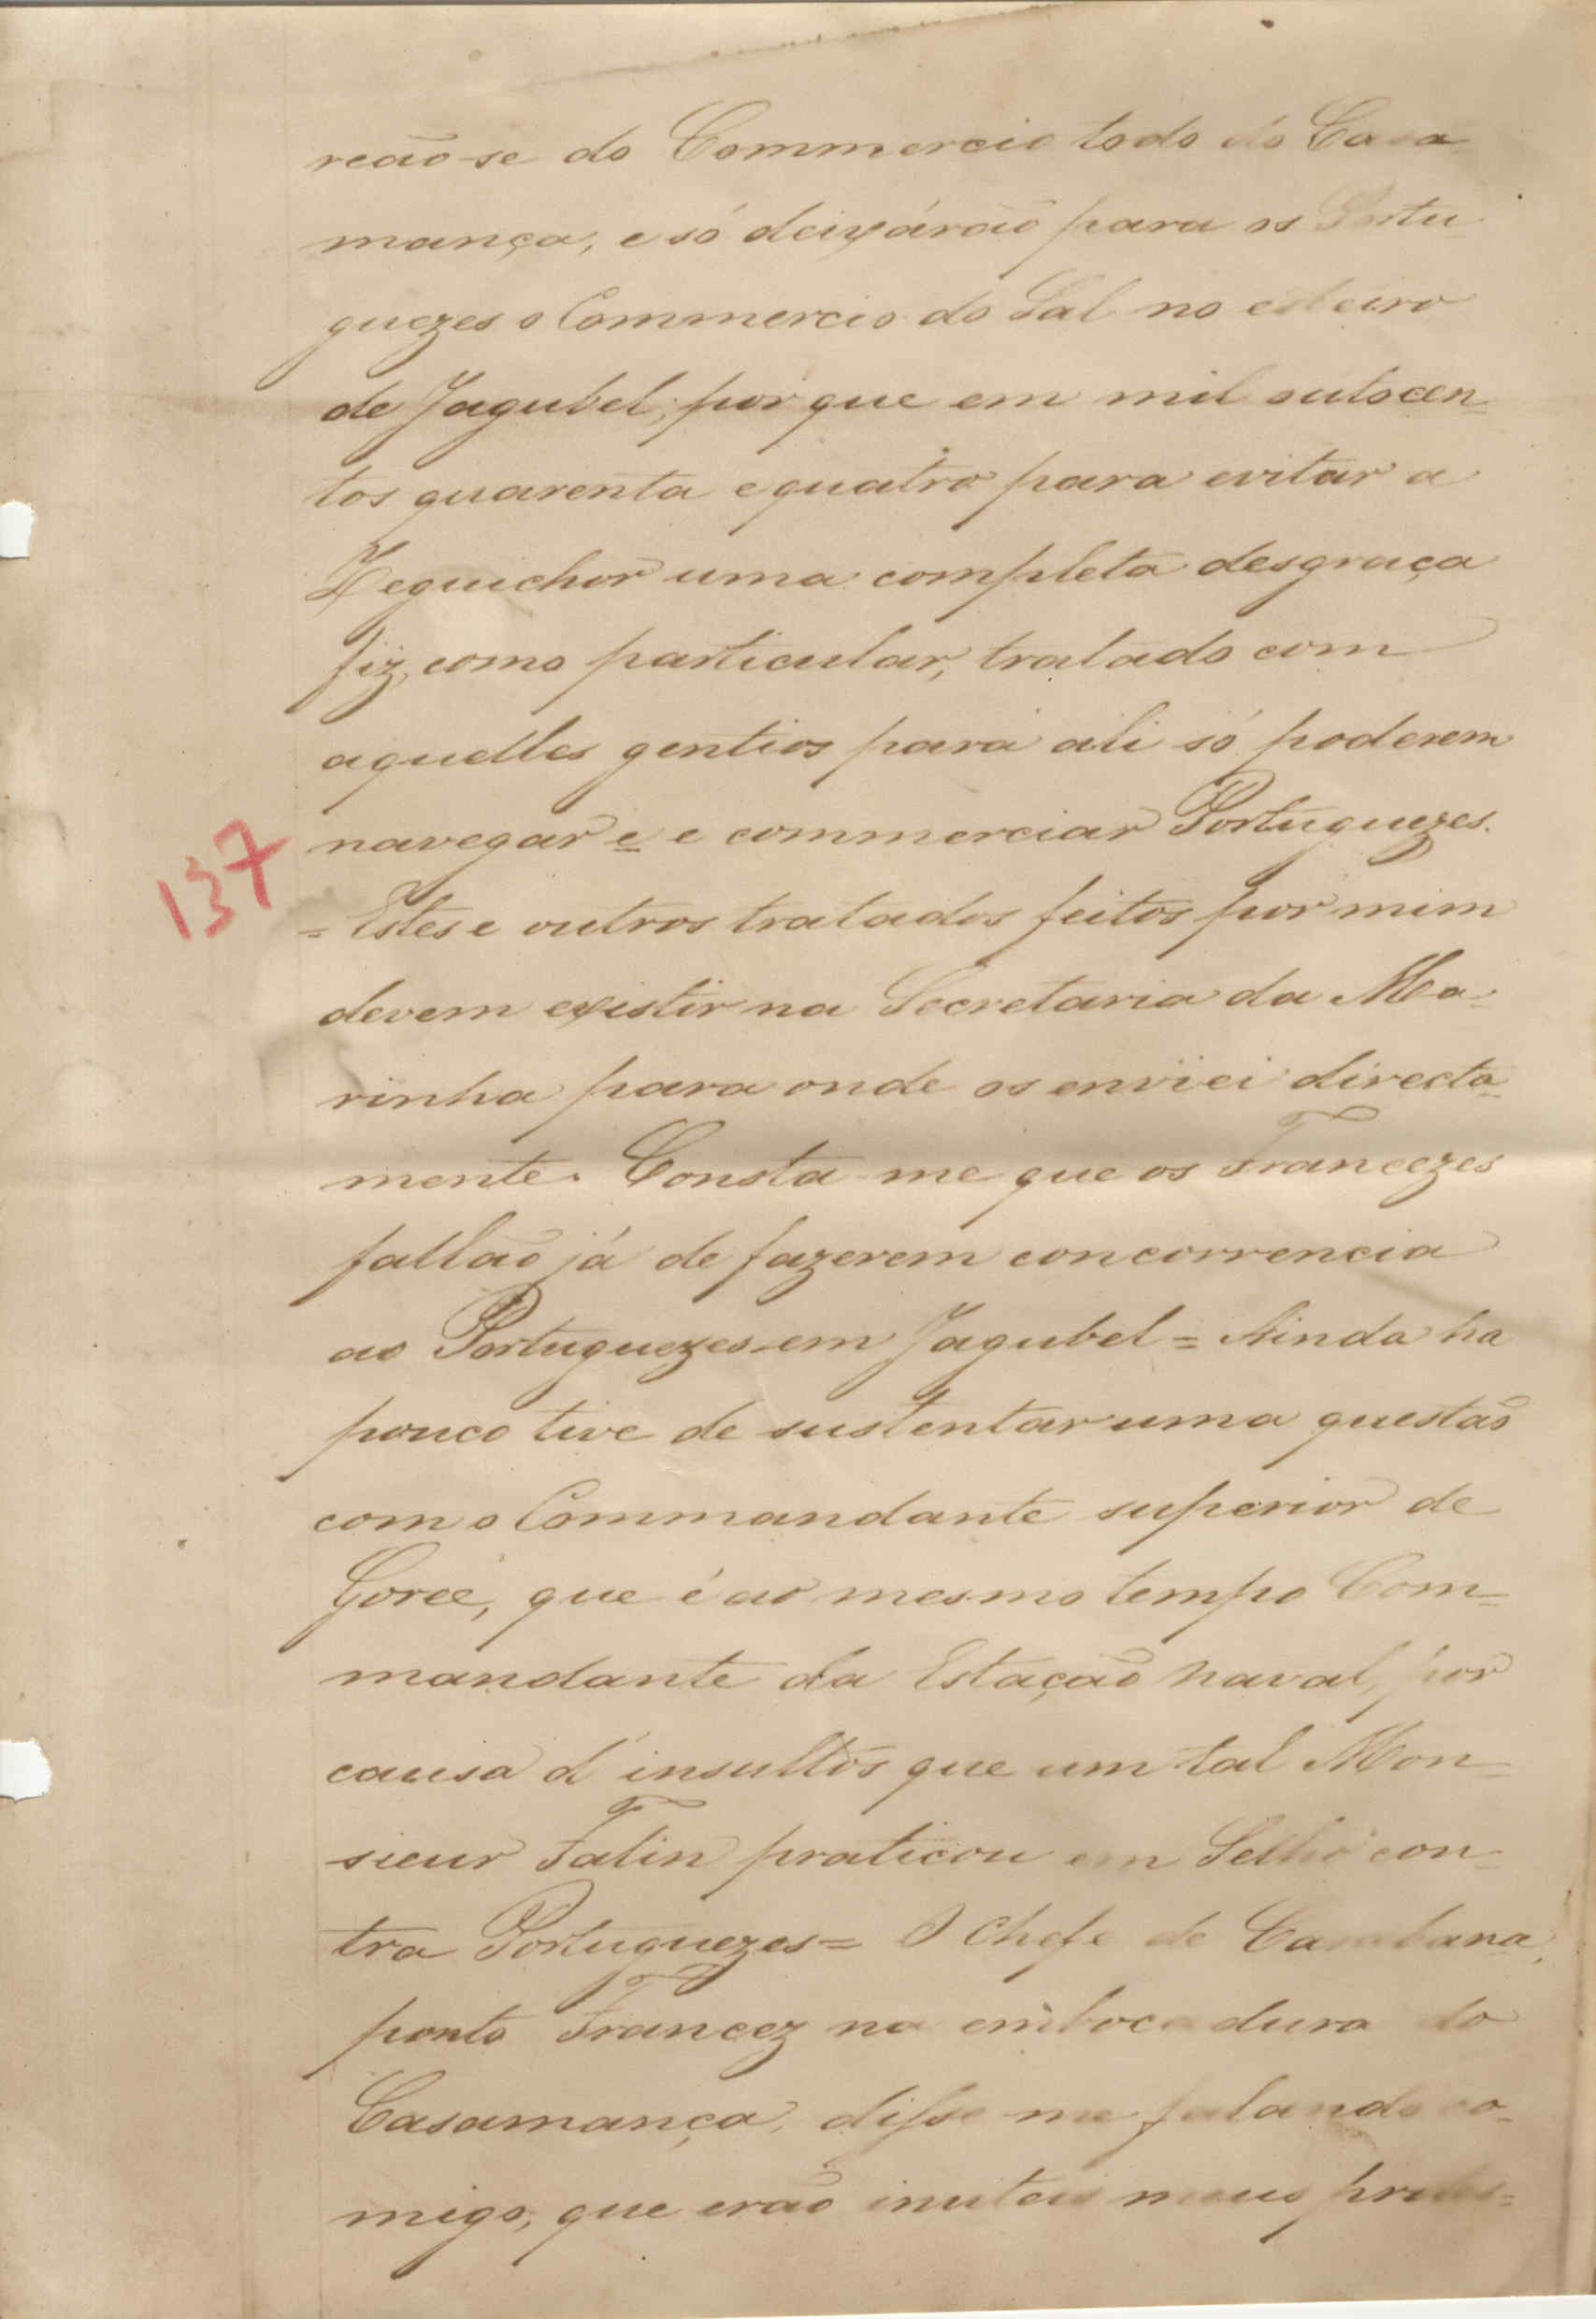 reão-se do Commercio todo do Casa
mança, e só deixárão para os Portu
guezes o Commercio do Sal no esteiro
de Jagubel; por que em mil outocen-
tos quarenta e quatro para evitar a
Zeguichor uma completa desgraça
fiz, como particular, tratado com
aquelles gentios para ali só poderem
navegar e e commerciar Portuguezes.
137
= Estes e outros tratados feitos por mim
devem existir na Secretaria da Ma-
rinha para onde os enviei directa-
mente. Consta-me que os Francezes
fallão já de fazerem concorrencia
ao Portuguezes em Jagubel = Ainda ha
pouco tive de sustentar uma questão
com o Commandante superior de
Goreé, que é ao mesmo tempo Com-
mandante da Estação naval, por
causa d'insultos que um tal Mon-
sieur Falin praticou em Selhó con-
tra Portuguezes = O Chefe de Carabana,
ponto Francez na embocadura do
Casamança, disse me falando co-
migo, que erão inuteis meus